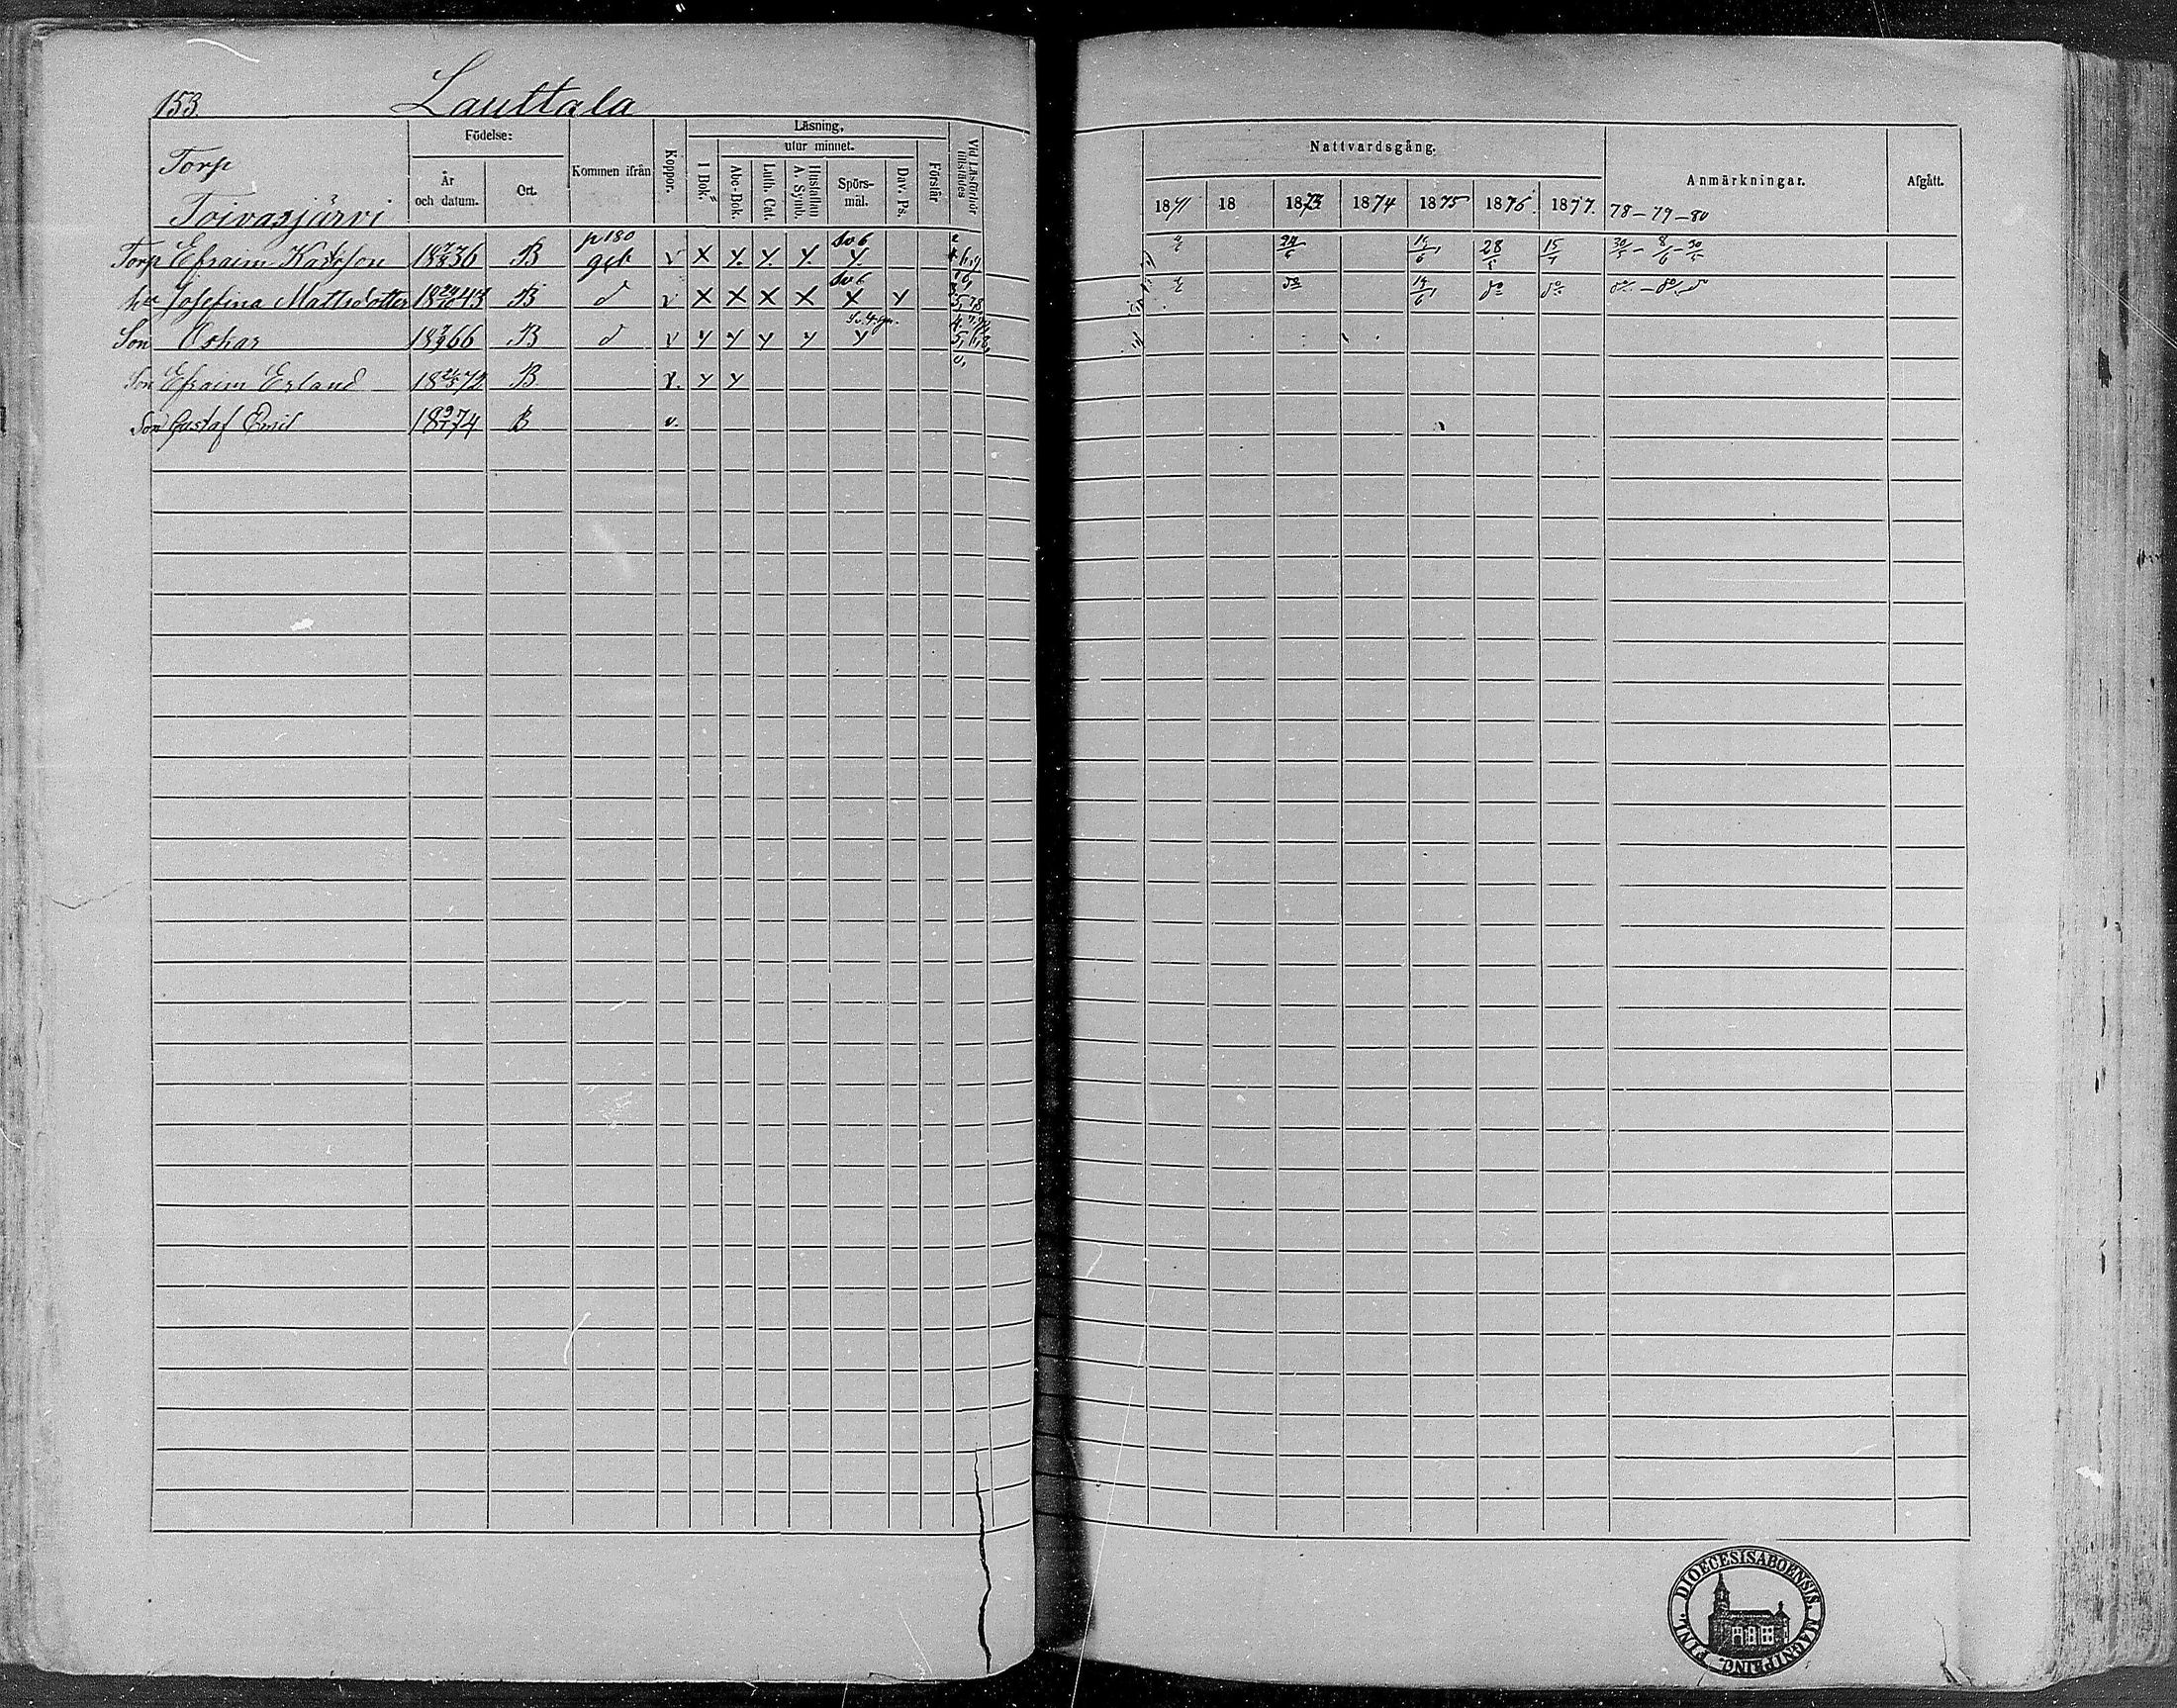 153.
Lauttala
Torp
Toivasjärvi
Födelse:
År och datum.
Ort.
Kommen ifrån
Koppor.
Läsning,
utur minnet.
I Bok.
Abc-Bok.
Luth. Cat.
Hustaflan A. Symb.
Spörs-mål.
Dav. Ps.
Förstår
Vid Läsförhör tillstädes
Nattvardsgång.
1871 18 1873 1874 1875 1876 1877.
Anmärkningar.
78-79-80
Afgått.
p 180 Sv 6
Torp Efraim 1836 B geb v X y. y. y. y 28 15
Sv 6
hu Josefina Mattsdotter 1843 B d v X X X X X y
Son Oskar 18 66 B d v y y y y y
Son Efraim Erland 18 72 B v. y y
Son Gustaf Emil 18 74 B v.
DIOECESIS ABOENSIS. MAGNI PRINC. FINL.